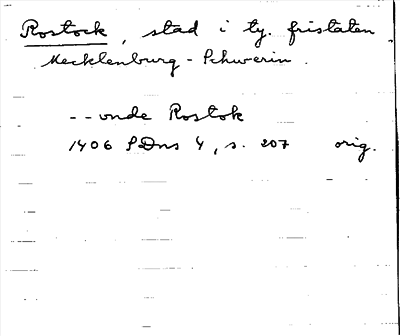 Rostock, stad i ty. fristaten
Mecklenburg-Schwerin.
-- vnde Rostok
1406 SDns 4, s. 207 orig.